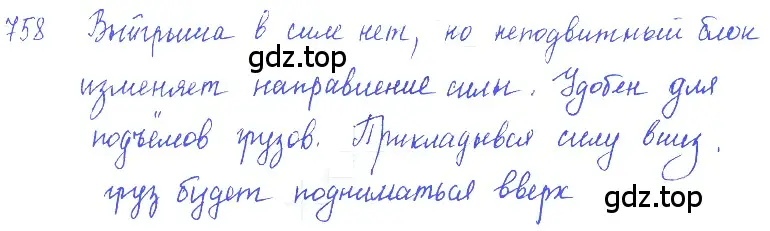 758 Выигрыша в силе нет, но неподвижный блок
изменяет направление силы. Удобен для
подъёмов грузов. Прикладыввся силу вниз,
груз будет подниматься вверх
gdz.top
gdz.top
gdz.top